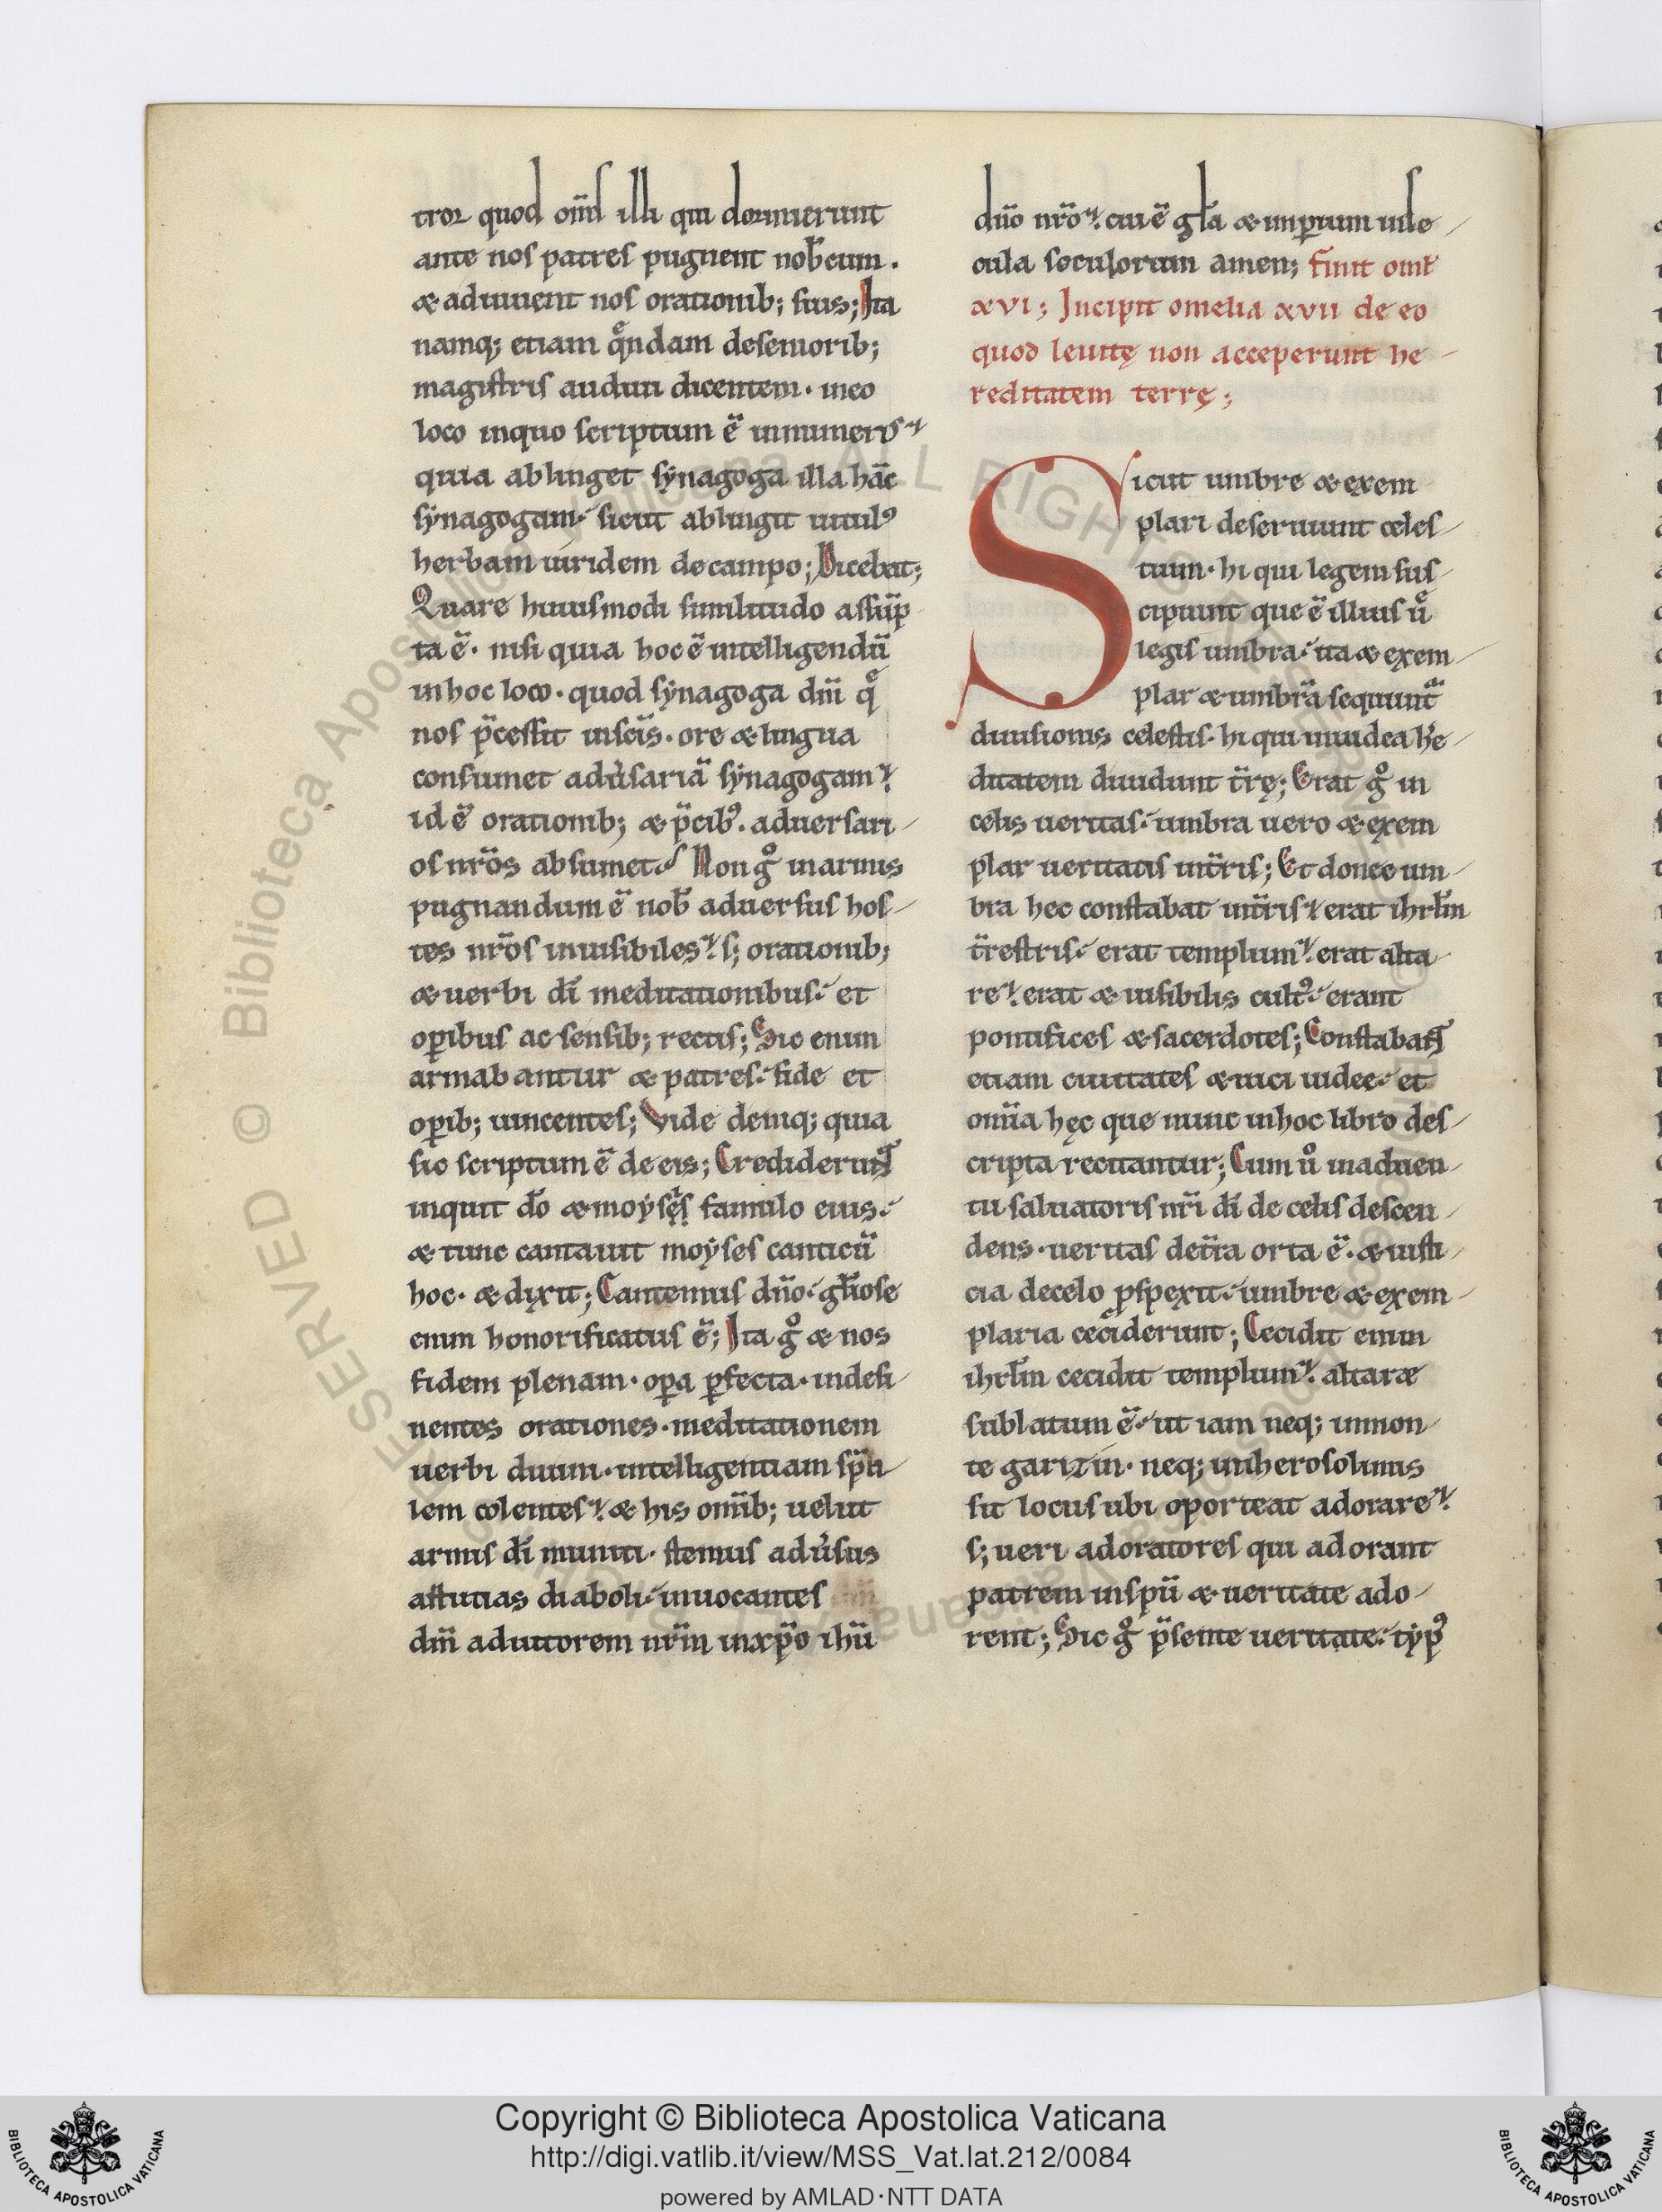 tror quod om̅s illi qui dormierunt
ante nos patres pugnent nob̅cum.
& adiuuent nos orationib; suis; Ita
namq; etiam que̅ndam de senioribꝫ
magistris audiui dicentem · in eo
loco in quo scriptum e̅ in numeris
quia ablinget synagoga illa ha̅c
synagogam · sicut ablingit uitul⁹
herbam uiridem de campo; Dicebat;
Quare huiusmodi similitudo assu̅p
ta e̅ · nisi quia hoc e̅ intelligendu̅
in hoc loco · quod synagoga dn̅i q̅
nos p̅cessit in sc̅is · ore & lingua
consumet adu̅saria̅ synagogam
id e̅ orationib; & p̅cib⁹ · aduersari
os nr̅os absumet Non g° in armis
pugnandum e̅ nob̅ aduersus hos
tes nr̅os inuisibiles s; orationib;
& uerbi di̅ meditationibus · et
op̅ibus ac sensib; rectis; Sic enim
armabantur & patres · fide et
op̅ib; uincentes; Vide deniq; quia
sic scriptum e̅ de eis; Crediderunt
inquit do̅ & moysi famulo eius
& tunc cantauit moyses canticu̅
hoc · & dixit; Cantemus dn̅o · gl̅iose
enim honorificatus e̅; Ita g° & nos
fidem plenam · op̅a p̅fecta · indesi
nentes orationes · meditationem
uerbi diuini · intelligentiam sp̅li
lem colentes & his om̅ib; uelut
armis di̅ muniti · stemus adu̅sus
astutias diaboli · inuocantes
dm̅ adiutorem nr̅m in xp̅o ihu̅
dn̅o nr̅o cui e̅ gl̅a & imperium in se
cula seculorum amen; finit omt̅
xvi; Incipit omelia xvii de eo
quod leuitę non acceperunt he
reditatem terrę;
Sicut umbre & exem
plari deseruiunt celes
tium · hi qui legem sus
cipiunt que e̅ illius ue̅
legis umbra · ita & exem
plar & umbra̅ sequunt̅
diuisionis celestis · hi qui in iudea he̅
ditatem diuidunt t̅rę; Erat g° in
celis ueritas · umbra uero & exem
plar ueritatis in t̅ris; Et donec um
bra hec constabat in t̅ris erat ihrl̅m
t̅restris · erat templum erat alta
re erat & uisibilis cult⁹ · erant
pontifices & sacerdotes; Constabant
etiam ciuitates & uici iudee · et
om̅ia hęc que nunc in hoc libro des
cripta recitantur; Cum u° in aduen
tu saluatoris nr̅i di̅ de celis descen
dens · ueritas de t̅ra orta e̅ · & iusti
cia de celo p̅spexit · umbre & exem
plaria ceciderunt; Cecidit enim
ihrl̅m cecidit templum altare
sublatum e̅ · ut iam neq; in mon
te garizin · neq; in iherosolimis
sit locus ubi oporteat adorare
s; ueri adoratores qui adorant
patrem in spu̅ & ueritate ado
rent; Sic g° p̅sente ueritate · typ⁹
Copyright © Biblioteca Apostolica Vaticana
http://digi.vatlib.it/view/MSS_Vat.lat.212/0084
powered by AMLAD·NTT DATA
BIBLIOTECA APOSTOLICA VATICANA
BIBLIOTECA APOSTOLICA VATICANA